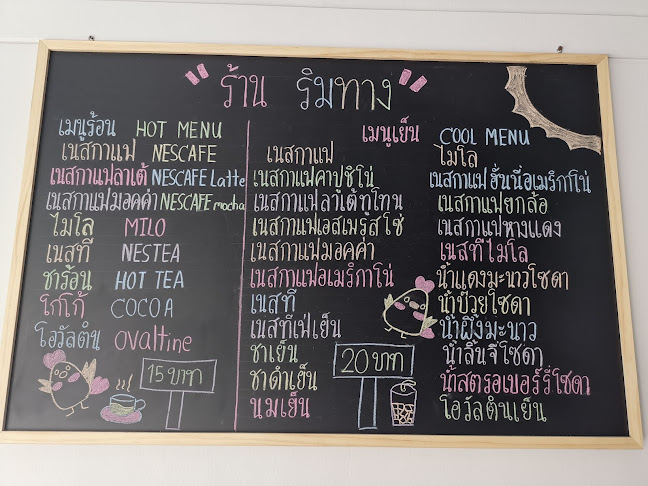 "ร้าน ริมทาง"
เมนูร้อน HOT MENU
เนสกาแฟ NESCAFE
เนสกาแฟลาเต้ NESCAFE Latte
เนสกาแฟมอคค่า NESCAFE mocha
ไมโล MILO
เนสที NESTEA
ชาร้อน HOT TEA
โกโก้ COCOA
โอวัลติน ovaltine
15 บาท
เมนูเย็น COOL MENU
เนสกาแฟ
เนสกาแฟคาปูชิโน่
เนสกาแฟลาเต้ทูโทน
เนสกาแฟเอสเมรัสโซ่
เนสกาแฟมอคค่า
เนสกาแฟอเมริกาโน่
เนสที
เนสทีเฟ่เย็น
ชาเย็น
ชาดำเย็น
นมเย็น
20 บาท
ไมโล
เนสกาแฟฮันนี่อเมริกาโน่
เนสกาแฟยกล้อ
เนสกาแฟทางแดง
เนสทีไมโล
น้ำแดงมะนาวโซดา
น้ำบ๊วยโซดา
น้ำผึ้งมะนาว
น้ำลิ้นจี่โซดา
น้ำสตรอเบอร์รี่โซดา
โอวัลตินเย็น